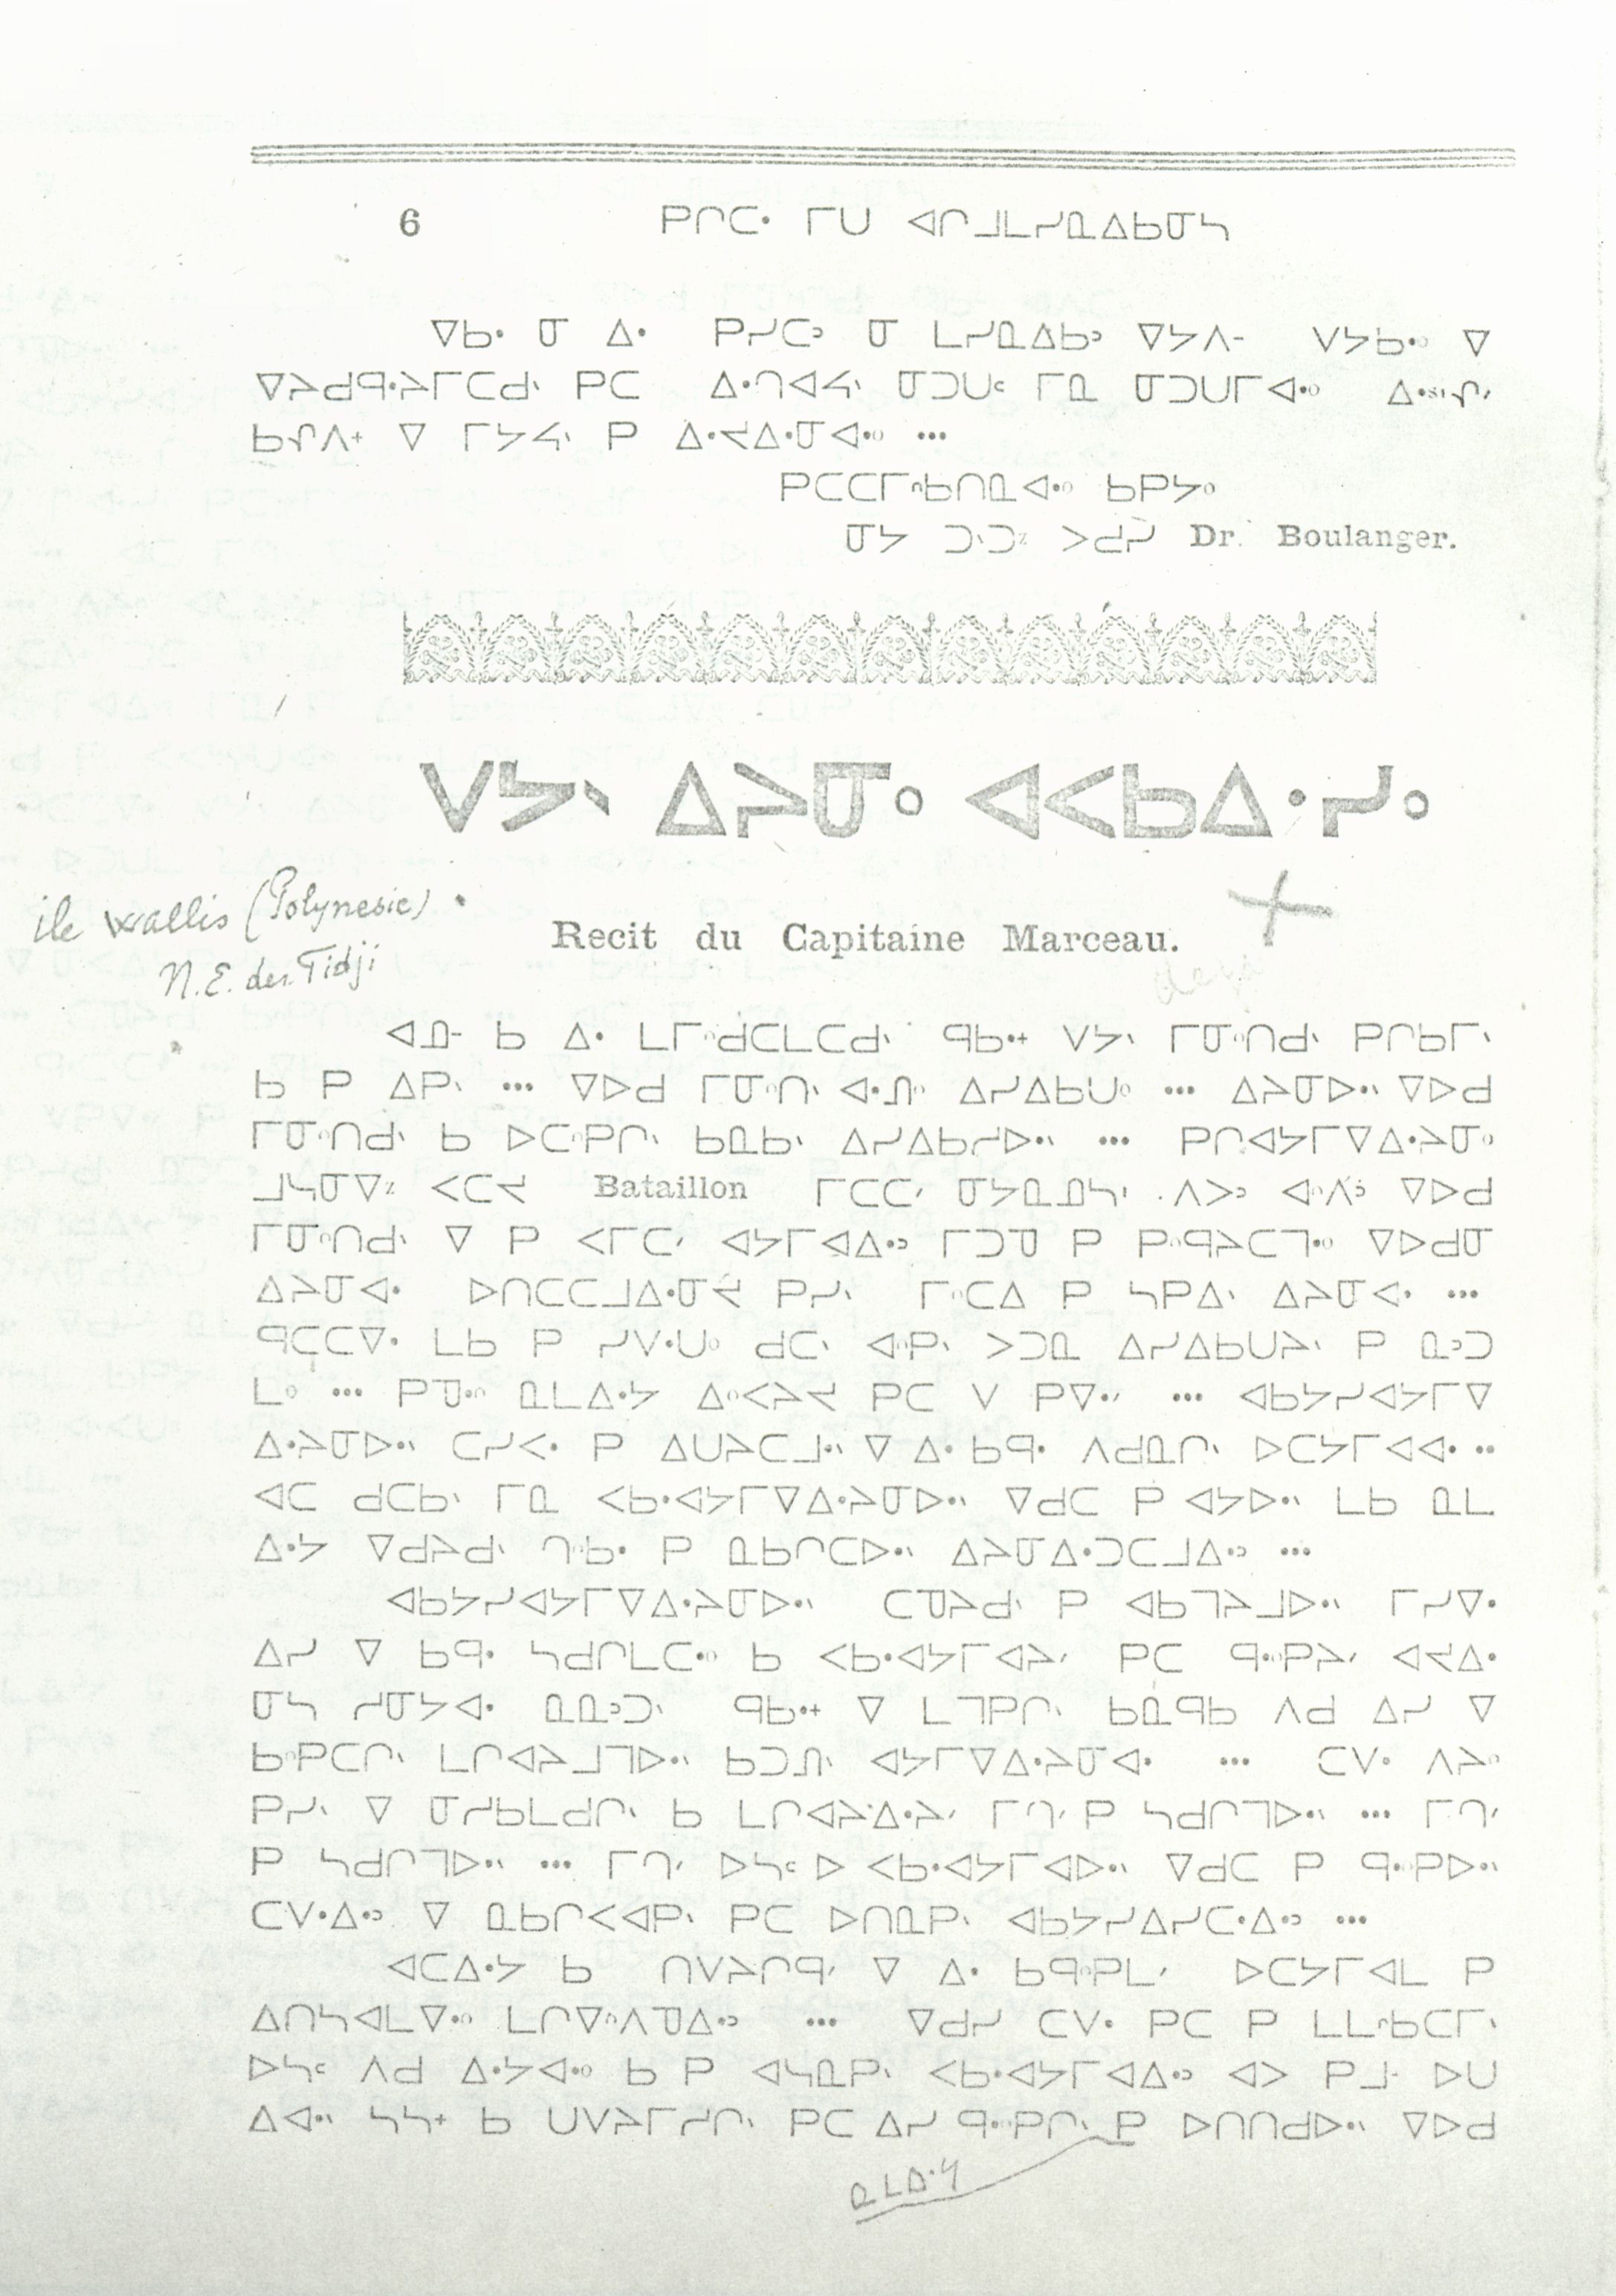 6 ᑭᒋᑕᐧ ᒥᑌ ᐊᒋᒧᒪᓯᓇᐃᑲᓂᓴ
ᐁᑲᐧ ᓂ ᐃᐧ ᑭᓯᑕᐣ ᓂ ᒪᓯᓇᐃᑲᐣ ᐁᔭᐱᐨ ᐯᔭᑲᐧᐤ ᐁ
ᐁᔨᑯᑫᐧᔨᒥᑕᑯᐠ ᑭᑕ ᐃᐧᒋᐊᔭᐠ ᓂᑐᑌᑦ ᒥᓇ ᓂᑐᑌᒥᐊᐧᐤ
ᑲᒋᐱᐩ ᐁ ᒥᔭᔭᐠ ᑭ ᐃᐧᔪᐃᐧᓂᐊᐧᐤ ...
ᑭᑕᑕᒥᐢᑲᑎᓇᐊᐧᐤ ᑲᑭᔭᐤ
ᓂᔭ ᑐᐠᑐᕒ ᐳᑯᓯ Dr. Boulanger.
ᐯᔭᐠ ᐃᔨᓂᐤ ᐊᐸᑲᐃᐧᓯᐤ
ile wallis (Polynesie)
N.E. des Fidji
Recit du Capitaine Marceau.
ᐊᓄᐨ ᑲ ᐃᐧ ᒪᒥᐢᑯᑕᒪᑕᑯᐠ ᑫᑲᐧᐩ ᐯᔭᐠ ᒥᓂᐢᑎᑯᐠ ᑭᒋᑲᒥᐠ
ᑲ ᑭ ᐃᑭᐠ ... ᐁᐅᑯ ᒥᓂᐢᑎᐠ ᐊᐧᓕᐢ ᐃᓯᐃᑲᑌᐤ ... ᐃᔨᓂᐅᐧᐠ ᐁᐅᑯ
ᒥᓂᐢᑎᑯᐠ ᑲ ᐅᑕᐢᑭᒋᐠ ᑲᓇᑲᐠ ᐃᓯᐃᑲᓱᐅᐧᐠ ... ᑭᒋᐊᔭᒥᐁᐃᐧᔨᓂᐤ
ᒧᓴᓂᐁᕒ ᐸᑕᔪ Bataillon ᒥᑕᑕᐟ ᓂᔭᓇᓄᓴᐠ ᐱᐳᐣ ᐊᐢᐱᐣ ᐁᐅᑯ
ᒥᓂᐢᑎᑯᐠ ᐁ ᑭ ᐸᒥᑕᐟ ᐊᔭᒥᐊᐃᐧᐣ ᒥᑐᓂ ᑭ ᑭᐢᑫᔨᑕᒣᐧᐤ ᐁᐅᑯᓂ
ᐃᔨᓂᐊᐧ ᐅᑎᑕᑕᒧᐃᐧᓂᔪ ᑭᓯᐠ ᒥᐢᑕᐃ ᑭ ᓴᑭᐃᐠ ᐃᔨᓂᐊᐧ ...
ᑫᑕᑕᐁᐧ ᒪᑲ ᑭ ᓯᐯᐧᑌᐤ ᑯᑕᐠ ᐊᐢᑭᐠ ᐳᑐᓇ ᐃᓯᐃᑲᑌᔨᐠ ᑭ ᓇᐣᑐ
ᒪᐤ ... ᑭᓄᐧᐢ ᓇᒪᐃᐧᔭ ᐃᐢᐸᔨᔪ ᑭᑕ ᐯ ᑭᐁᐧᐟ ... ᐊᑲᔭᓯᐊᔭᒥᐁ
ᐃᐧᔨᓂᐅᐧᐠ ᑕᓯᐸᐧ ᑭ ᐃᑌᔨᑕᒧᐧᐠ ᐁ ᐃᐧ ᑲᑫᐧ ᐱᑯᓇᒋᐠ ᐅᑕᔭᒥᐊᐊᐧ ...
ᐊᑕ ᑯᑕᑲᐠ ᒥᓇ ᐸᑲᐧᐊᔭᒥᐁᐃᐧᔨᓂᐅᐧᐠ ᐁᑯᑕ ᑭ ᐊᔭᐅᐧᐠ ᒪᑲ ᓇᒪ
ᐃᐧᔭ ᐁᑯᔨᑯᐠ ᒋᐢᑲᐧ ᑭ ᓇᑲᒋᑕᐅᐧᐠ ᐃᔨᓂᐃᐧᑐᑕᒧᐃᐧᐣ ...
ᐊᑲᔭᓯᐊᔭᒥᐁᐃᐧᔨᓂᐅᐧᐠ ᑕᓂᔨᑯᐠ ᑭ ᐊᑲᒣᔨᒧᐅᐧᐠ ᒥᓯᐁᐧ
ᐃᓯ ᐁ ᑲᑫᐧ ᓴᑯᒋᒪᑕᐧᐤ ᑲ ᐸᑲᐧᐊᔭᒥᐊᔨᐟ ᑭᑕ ᑫᐧᐢᑭᔨᐟ ᐊᔪᐃᐧ
ᓂᓴ ᓱᓂᔭᐊᐧ ᓇᓇᐣᑐᐠ ᑫᑲᐧᐩ ᐁ ᒪᒣᑭᒋᐠ ᑲᓇᑫᑲ ᐱᑯ ᐃᓯ ᐁ
ᑲᐢᑭᑕᒋᐠ ᒪᒋᐊᔨᒧᒣᐅᐧᐠ ᑲᑐᓕᐠ ᐊᔭᒥᐁᐃᐧᔨᓂᐊᐧ ... ᑕᐯᐧ ᐱᔨᐢ
ᑭᓯᐠ ᐁ ᓂᓱᑲᒪᑯᒋᐠ ᑲ ᒪᒋᐊᔨᐃᐧᔨᐟ ᒥᒉᐟ ᑭ ᓴᑯᒋᒣᐅᐧᐠ ... ᒥᒉᐟ
ᑭ ᓴᑯᒋᒣᐅᐧᐠ ... ᒥᒉᐟ ᐅᓴᑦ ᐅ ᐸᑲᐧᐊᔭᒥᐊᐅᐧᐠ ᐁᑯᑕ ᑭ ᑫᐧᐢᑭᐅᐧᐠ
ᑕᐯᐧᐃᐧᐣ ᐁ ᓇᑲᒋᐸᐊᑭᐠ ᑭᑕ ᐅᑎᓇᑭᐠ ᐊᑲᔭᓯᐃᓯᑕᐧᐃᐧᐣ ...
ᐊᑕᐃᐧᔭ ᑲ ᑎᐯᔨᒋᑫᐟ ᐁ ᐃᐧ ᑲᑫᐢᑭᒪᐟ ᐅᑕᔭᒥᐊᒪ ᑭ
ᐃᑎᓴᐊᒪᐁᐧᐤ ᒪᒋᐁᐢᐱᓄᐃᐧᐣ ... ᐁᑯᓯ ᑕᐯᐧ ᑭᑕ ᑭ ᒪᒪᐢᑲᑕᒥᐠ
ᐅᓴᑦ ᐱᑯ ᐃᐧᔭᐊᐧᐤ ᑲ ᑭ ᐊᓴᓇᑭᐠ ᐸᑲᐧᐊᔭᒥᐊᐃᐧᐣ ᐊᐳ ᑭᒧᐨ ᐅᑌ
ᐃᐊᐧᐠ ᓴᓴᐩ ᑲ ᑌᐯᔨᒥᓱᒋᐠ ᑭᑕ ᐃᓯ ᑫᐧᐢᑭᒋᐠ ᑭ ᐅᑎᑎᑯᐅᐧᐠ ᐁᐅᑯ
ᓇᒪᐃᐧᔭ